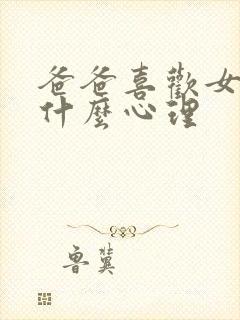 爸爸喜歡女
什麼心理
魯冀